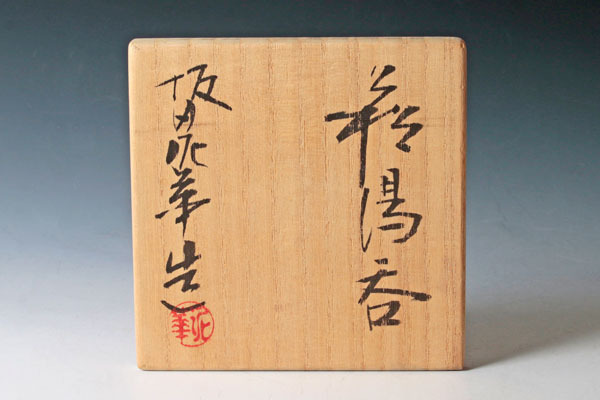 萩湯呑
坂田泥華造
泥華